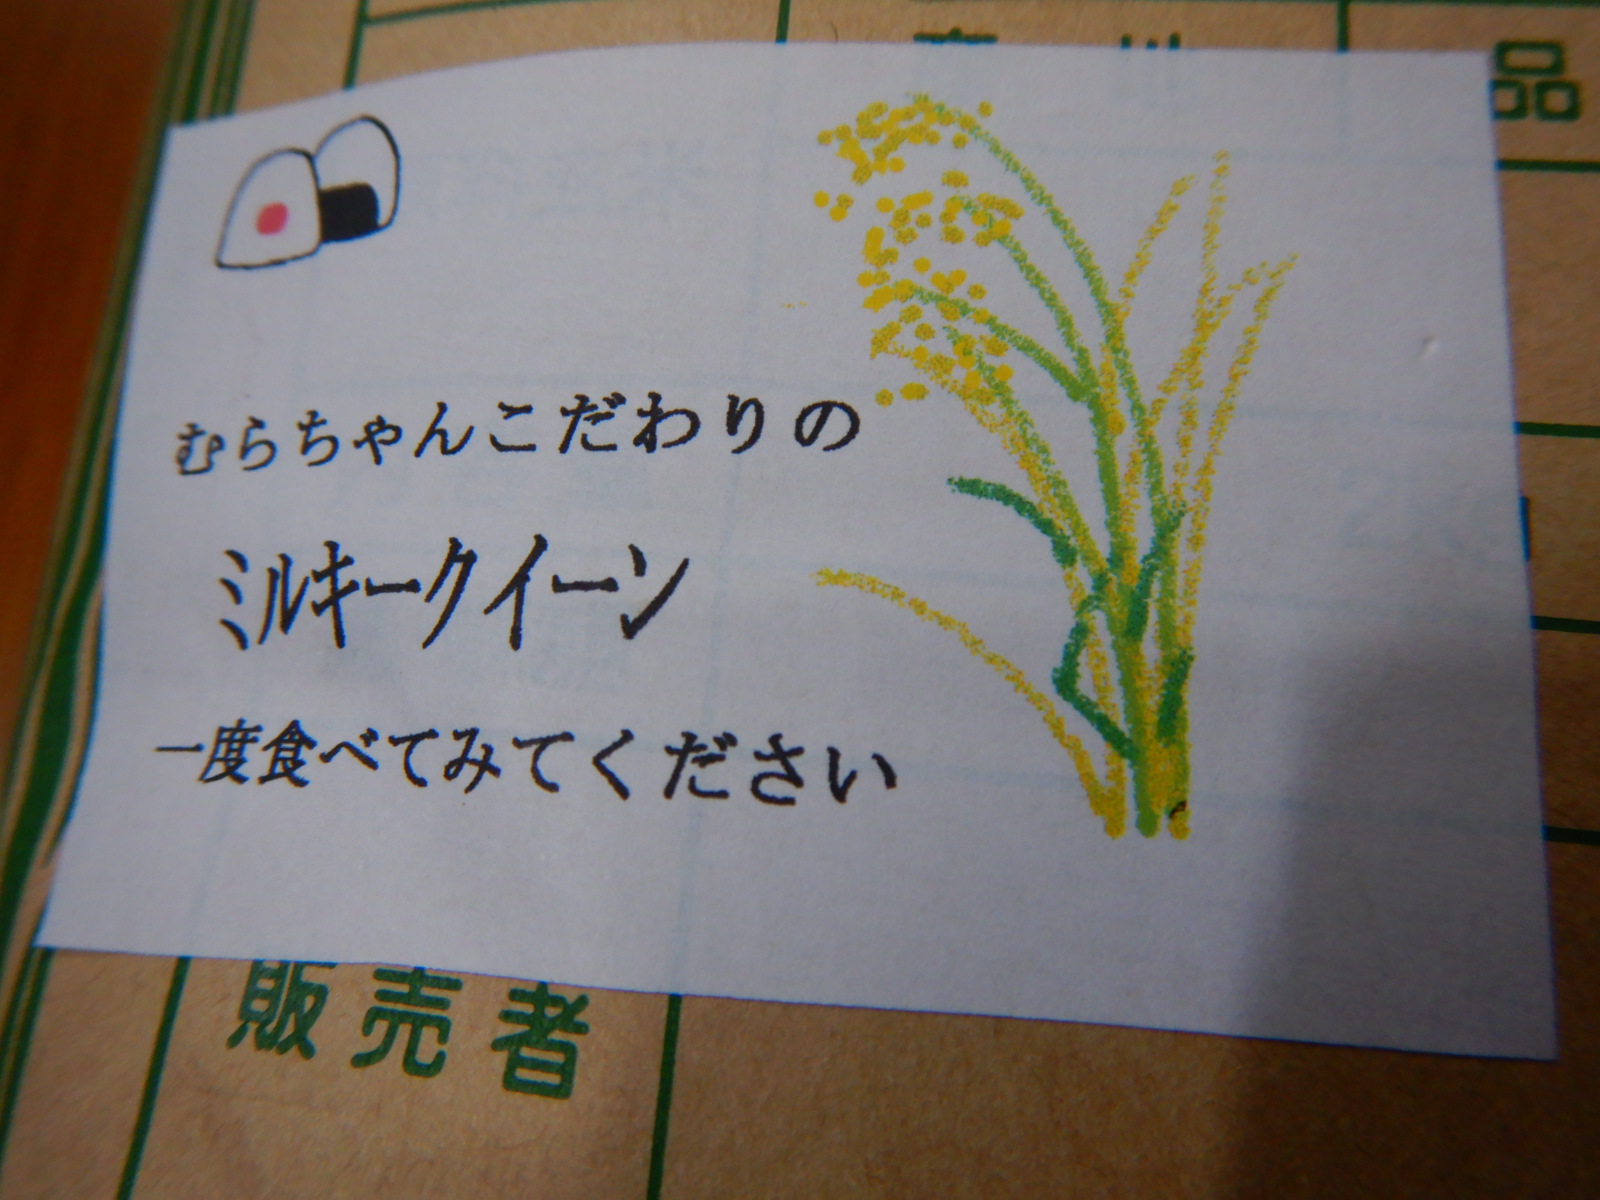 品
むらちゃんこだわりの
ミルキークイーン
一度食べてみてください
販売者